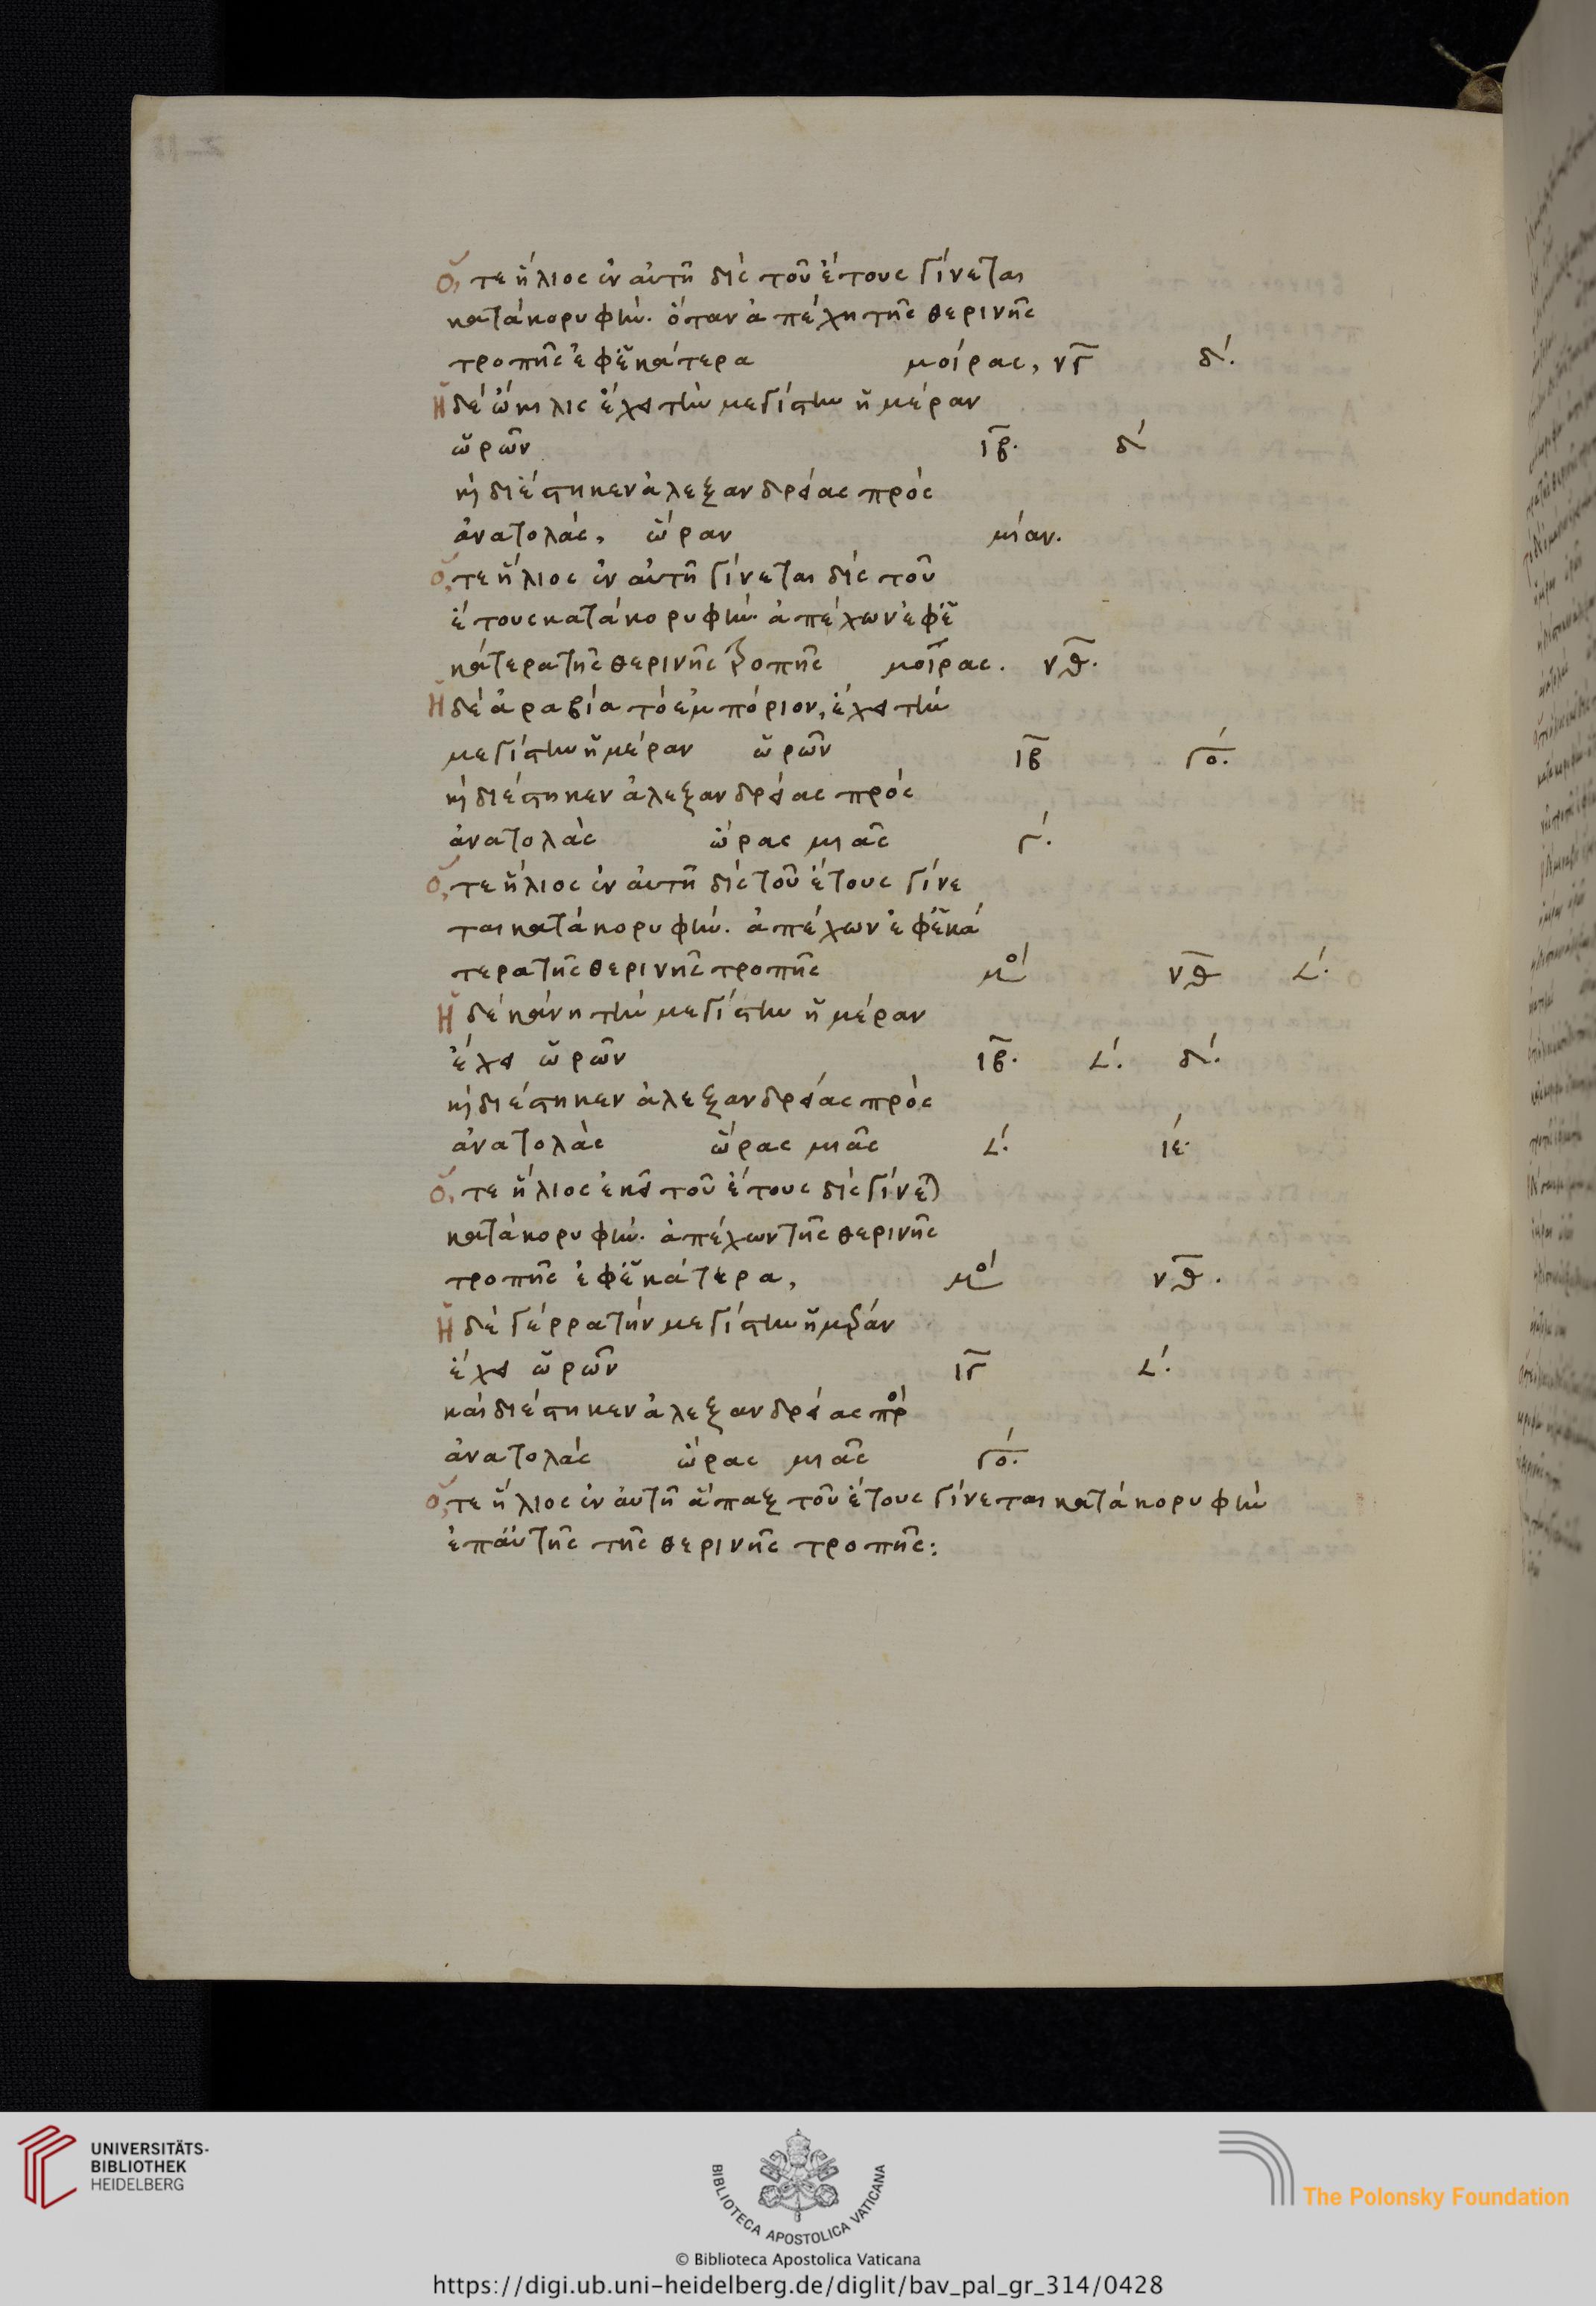 Ὅ, τε ἥλιος ἐν αὐτῆ δὶς τοῦ ἔτους γίνεται
κατὰ κορυφήν. ὅταν ἀπέχη τῆς θερινῆς
τροπῆς ἐφ ἑκάτερα μοίρας, νγ δ'.
Ἡ δὲ ὤκηλις ἔχει τὴν μεγίστην ἡμέραν
ὡρῶν ιβ. δ'
κὶ διέστηκεν ἀλεξανδρείας πρὸς
ἀνατολὰς, ὥραν μίαν.
Ὅ, τε ἥλιος ἐν αὐτῆ γίνεται δὶς τοῦ
ἔτους κατὰ κορυφήν. ἀπέχων ἐφ ἑ
κάτερα τῆς θερινῆς τροπῆς μοίρας. νθ.
Ἡ δὲ ἀραβία τὸ ἐμπόριον, ἔχει τὴν
μεγίστην ἡμέραν ὡρῶν ιβ γο'.
κὶ διέστηκεν ἀλεξανδρείας πρὸς
ἀνατολὰς ὥρας μιᾶς γ'.
Ὅ, τε ἥλιος ἐν αὐτῆ δὶς τοῦ ἔτους γίνε
ται κατὰ κορυφήν. ἀπέχων ἐφ ἑκά
τερα τῆς θερινῆς τροπῆς μοί νθ 𐅵'.
Ἡ δὲ κάνη τὴν μεγίστην ἡμέραν
ἔχει ὡρῶν ιβ. 𐅵'. δ'.
κὶ διέστηκεν ἀλεξανδρείας πρὸς
ἀνατολὰς ὥρας μιᾶς 𐅵'. ιε'.
Ὅ, τε ἥλιος ἐκεῖ τοῦ ἔτους δὶς γίνε)
κατὰ κορυφήν. ἀπέχων τῆς θερινῆς
τροπῆς ἐφ ἑκάτερα, μοί νθ.
Ἡ δὲ γέρρα τὴν μεγίστην ἡμέραν
ἔχει ὡρῶν ιγ 𐅵'.
καὶ διέστηκεν ἀλεξανδρείας πρὸ
ἀνατολὰς ὥρας μιᾶς γο'.
Ὅ, τε ἥλιος ἐν αὐτῆ ἅπαξ τοῦ ἔτους γίνεται κατὰ κορυφὴν
ἐπ αὐτῆς τῆς θερινῆς τροπῆς:
UNIVERSITÄTS-
BIBLIOTHEK
HEIDELBERG
BIBLIOTECA APOSTOLICA VATICANA
The Polonsky Foundation
© Biblioteca Apostolica Vaticana
https://digi.ub.uni-heidelberg.de/diglit/bav_pal_gr_314/0428